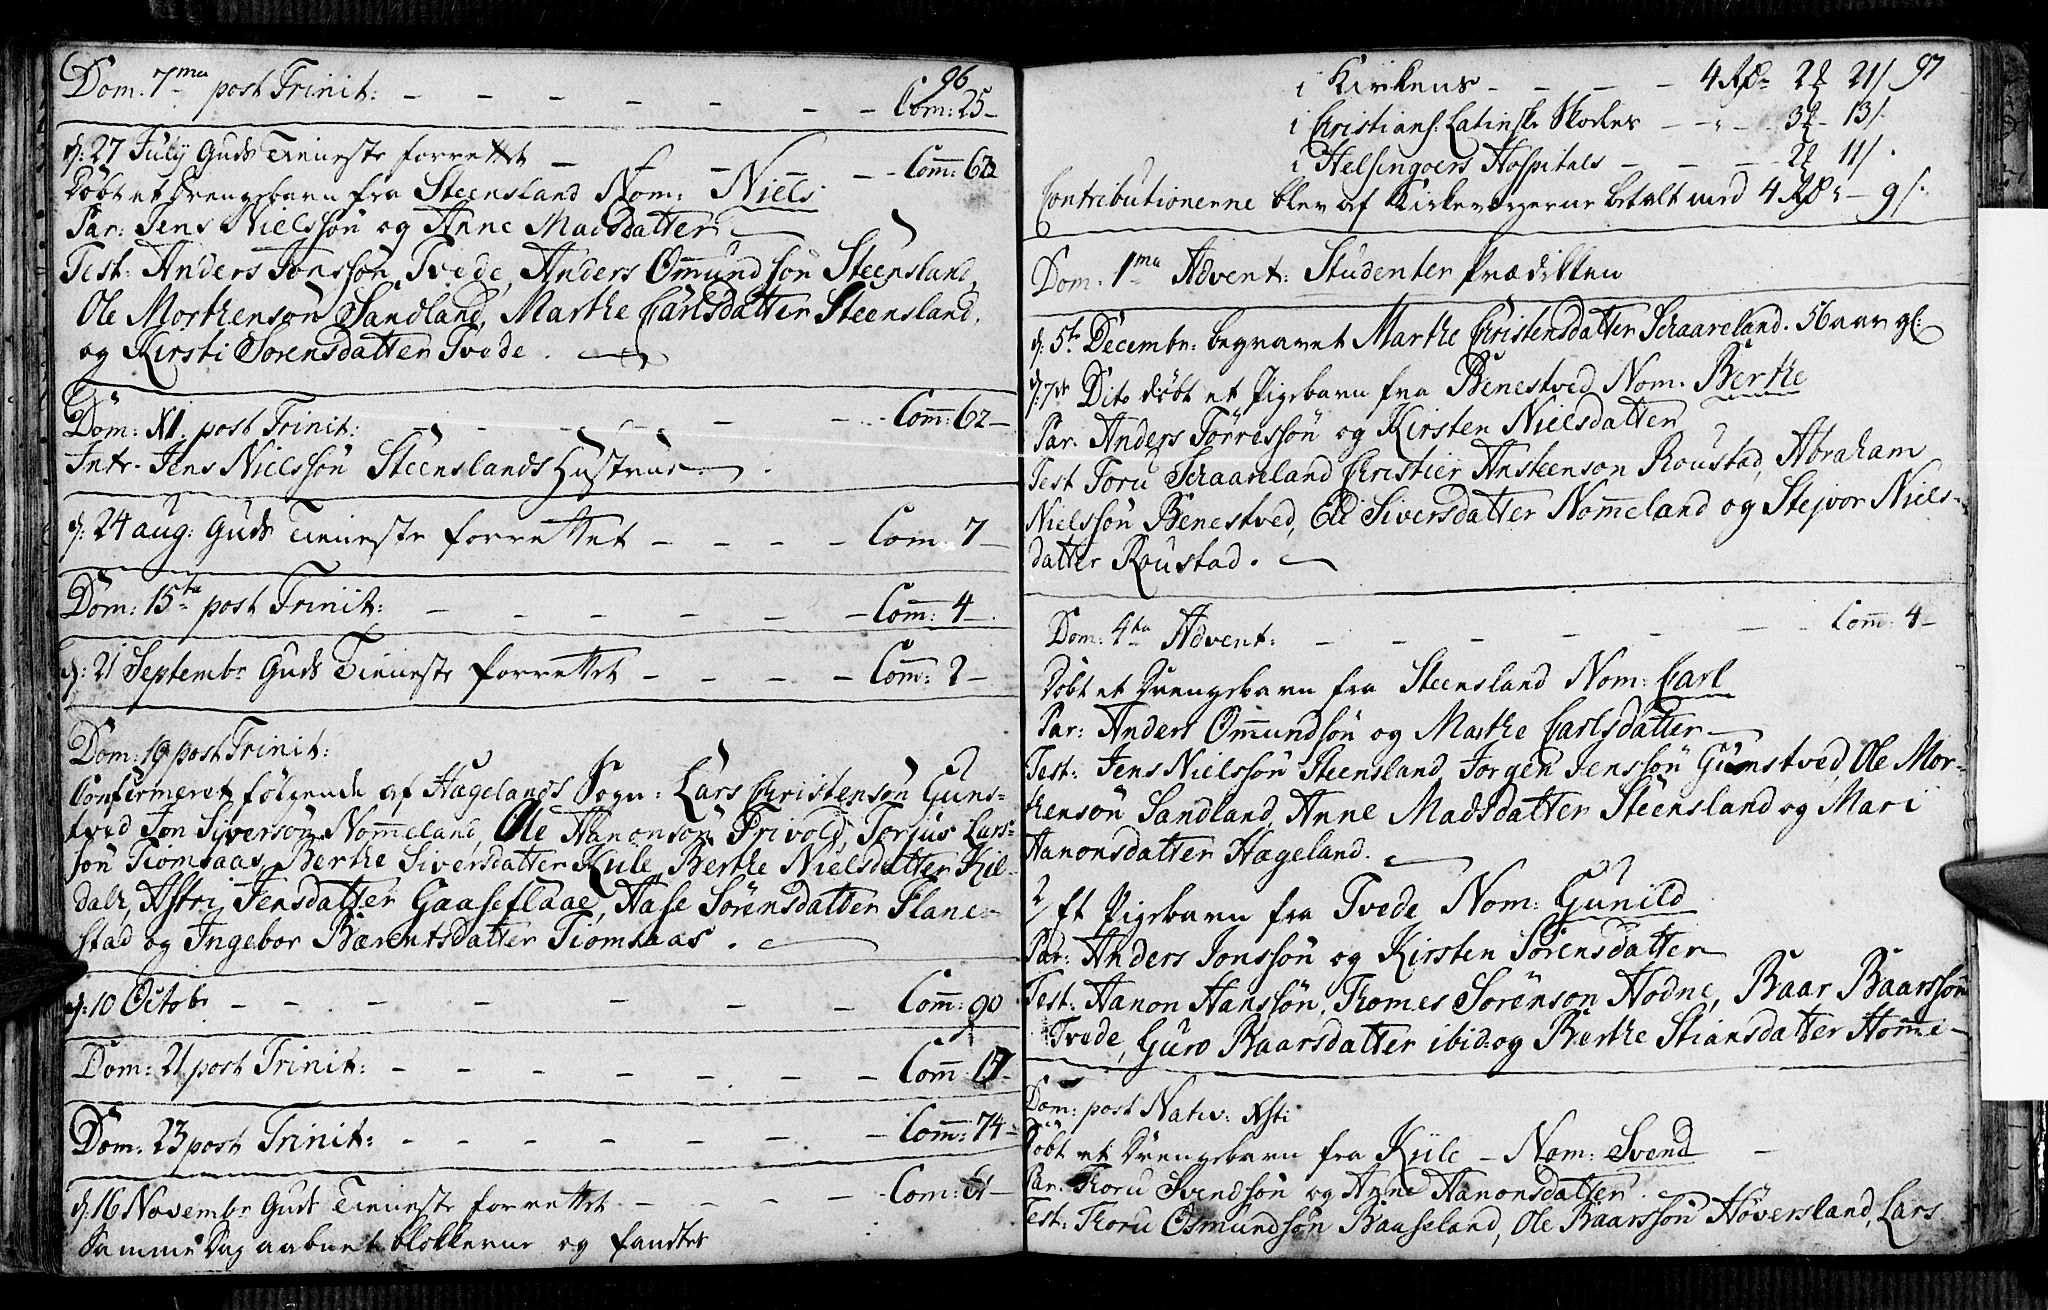 96
Dom. 7ma post Trinit: Com: 25
d: 27 July Guds Tieneste forrettet Com̄: 62
Døbt et Drengebarn fra Steensland Nom: Niels
Par: Jens Nielssön og Anne Madsdatter
Test: Anders Jonssön Tvede, Anders Om̄undsön Steensland,
Ole Morthensön Sandland, Marthe Carlsdatter Steensland,
og Kirsti Sörensdatter Tvede.
Dom: XI. post Trinit: Com̄: 62
Intr. Jens Nielssön Steenslands Hustrue
d: 24 aug: Guds Tieneste forrettet Com. 7
Dom: 15ta post Trinit: Com̄: 4
d: 21 Septembr Guds Tieneste forrettet Com̄: 2
Dom: 19 post Trinit:
Confirmeret følgende af Hægelands Sogn: Lars Christensön Guns-
tved Jon Siversön Nom̄eland, Ole Aanonsön Privold, Torjus Lars-
sön Tiomsaas, Berthe Siversdatter Kule, Berthe Nielsdatter Kil-
dale, Astri Jensdatter Gaaseflaae, Aase Sörensdatter Flane-
stad og Ingebor Bærentsdatter Tiomsaas.
d: 10 Octobr Com̄: 90
Dom: 21 post Trinit: Com̄: 17
Dom: 23 post Trinit: Com̄: 74
d: 16 Novembr Guds Tieneste forrettet Com: 61
Samme Dag aabnet blokkerne og fandtes
97
i Kirkens 4 Rdr 2 21/
i Christians: Latinske Skoeles 3 13/.
i Helsingoers Hospitals 2 11/.
Contributionerne blev af Kirkeværgerne betalt med 4 Rdr 9/:
Dom. 1ma Advent: Studenter Prædikken
d: 5te Decembr: begravet Marthe Christensdatter Skaareland. 56 aar gl:
d: 7de Dito døbt et Pigebarn fra Benestved Nom. Berthe
Par. Anders Törressön og Kirsten Nielsdatter
Test Toru Skaareland Christier Ansteenson Roustad, Abraham
Nielssön Benestved, Eli Siversdatter Nom̄eland og Stejvor Niels-
datter Roustad.
Dom: 4ta Advent: Com̄: 4
Døbt et Drengebarn fra Steensland Nom: Carl
Par: Anders Om̄undsön og Marthe Carlsdatter
Test: Jens Nielssön Steensland, Jorgen Jenssön Gunstved, Ole Mor-
thensön Sandland, Anne Madsdatter Steensland og Mari
Aanonsdatter Hægeland.
2/ Et Pigebarn fra Tvede Nom: Gunild
Par: Anders Jonssön og Kirsten Sörensdatter
Test: Aanon Hanssön, Thomes Sörenson Hodne, Baar Baarssön
Tvede, Guro Baarsdatter ibid: og Berthe Stiansdatter Hom̄e
Dom: post Nativ: Xsti
Døbt et Drengebarn fra Kule Nom: Svend
Par: Thoru Svendsön og Anne Aanonsdatter
Test: Thoru Osmundsön Baaseland, Ole Baarssön Höversland, Lars